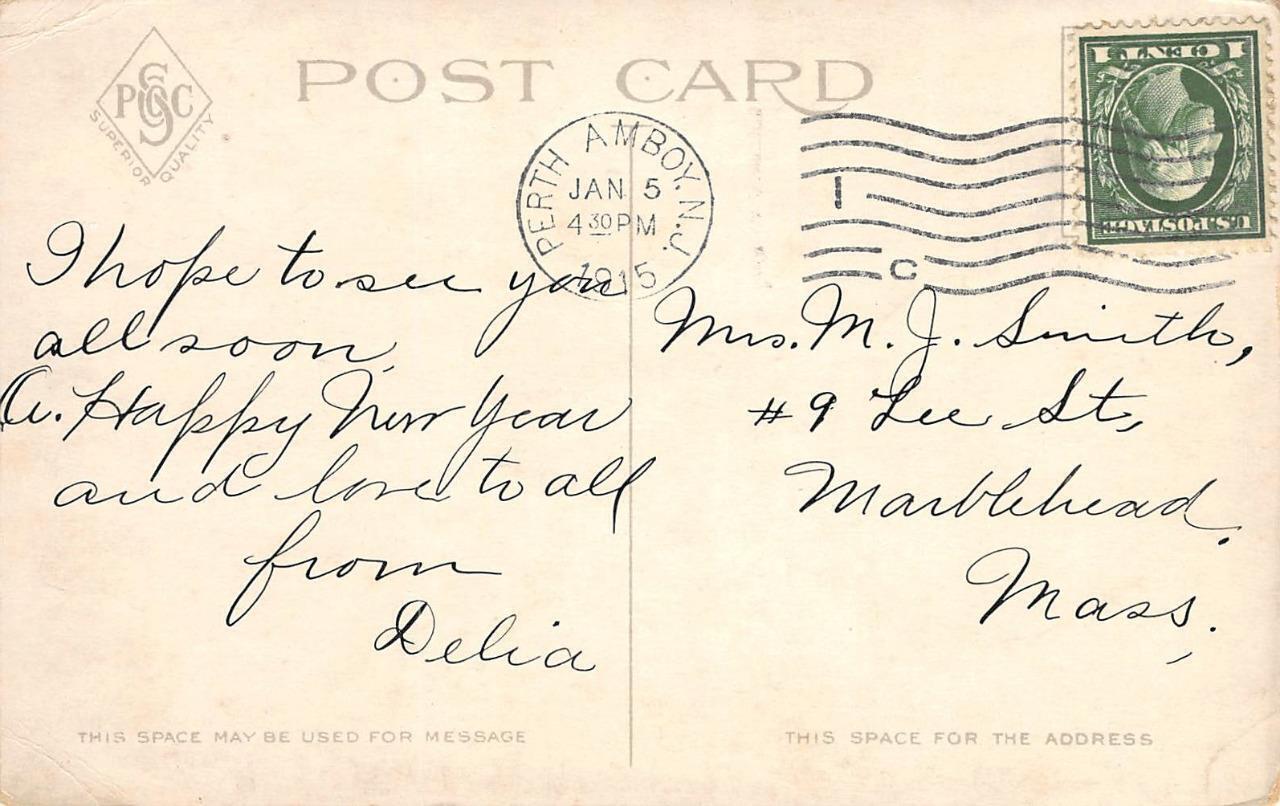 POST CARD
PSGC
SUPERIOR QUALITY
PERTH AMBOY, N.J.
JAN 5
4 30 PM
1915
1
C
U.S. POSTAGE
1 CENT 1
I hope to see you
all soon.
A. Happy New Year
and love to all
from
Delia
Mrs. M. J. Smith,
#9 Lee St,
Marblehead.
Mass.
THIS SPACE MAY BE USED FOR MESSAGE
THIS SPACE FOR THE ADDRESS